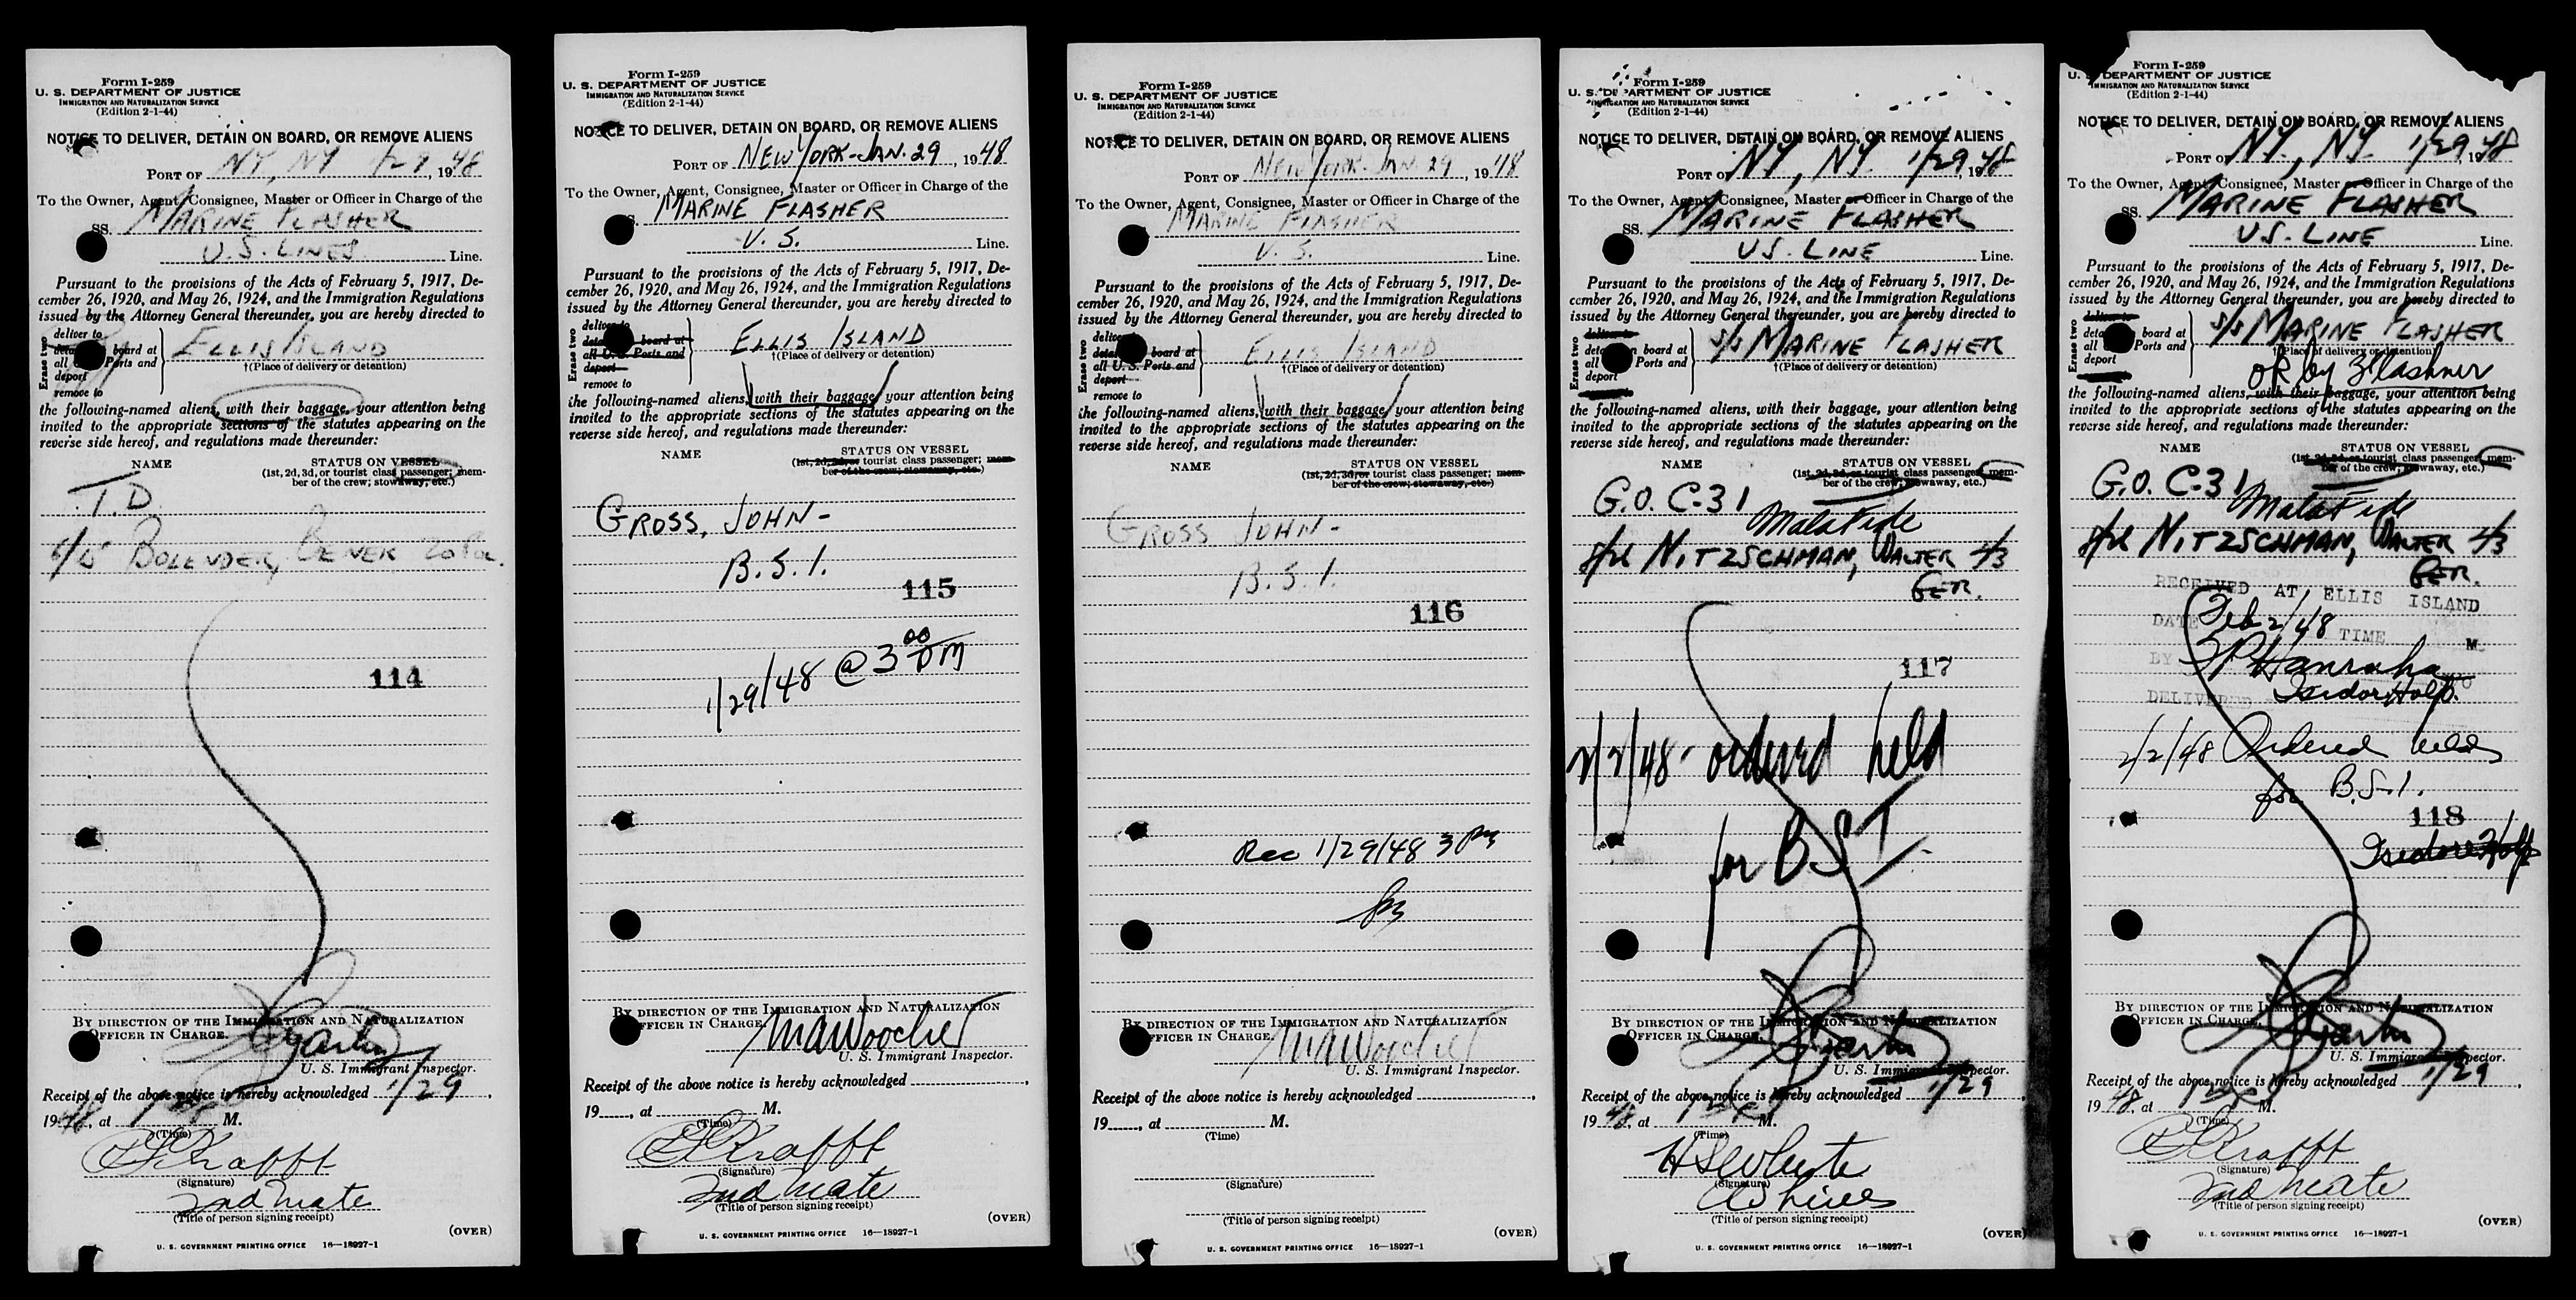 Form I-259
U. S. DEPARTMENT OF JUSTICE
IMMIGRATION AND NATURALIZATION SERVICE
(Edition 2-1-44)
NOTICE TO DELIVER, DETAIN ON BOARD, OR REMOVE ALIENS
PORT OF NY, NY 1/29, 1948
To the Owner, Agent, Consignee, Master or Officer in Charge of the
SS. MARINE FLASHER
U.S. LINES Line.
Pursuant to the provisions of the Acts of February 5, 1917, De-
cember 26, 1920, and May 26, 1924, and the Immigration Regulations
issued by the Attorney General thereunder, you are hereby directed to
Erase two
deliver to
board at
all Ports and
deport
remove to
ELLIS ISLAND
†(Place of delivery or detention)
the following-named aliens, with their baggage, your attention being
invited to the appropriate sections of the statutes appearing on the
reverse side hereof, and regulations made thereunder:
NAME
STATUS ON VESSEL
(1st, 2d, 3d, or tourist class passenger; mem-
ber of the crew; stowaway, etc.)
T.D
BOLENDER,
114
BY DIRECTION OF THE IMMIGRATION AND NATURALIZATION
OFFICER IN CHARGE.
U. S. Immigrant Inspector.
Receipt of the above notice is hereby acknowledged 1/29,
1948, at M.
(Time)
Krafft
(Signature)
2nd Mate
(Title of person signing receipt)
(OVER)
U. S. GOVERNMENT PRINTING OFFICE 16—18927-1
Form I-259
U. S. DEPARTMENT OF JUSTICE
IMMIGRATION AND NATURALIZATION SERVICE
(Edition 2-1-44)
NOTICE TO DELIVER, DETAIN ON BOARD, OR REMOVE ALIENS
PORT OF NEW YORK-JAN. 29, 1948
To the Owner, Agent, Consignee, Master or Officer in Charge of the
MARINE FLASHER
U. S. Line.
Pursuant to the provisions of the Acts of February 5, 1917, De-
cember 26, 1920, and May 26, 1924, and the Immigration Regulations
issued by the Attorney General thereunder, you are hereby directed to
Erase two
deliver to
board at
all U. S. Ports and
deport
remove to
ELLIS ISLAND
†(Place of delivery or detention)
the following-named aliens, with their baggage, your attention being
invited to the appropriate sections of the statutes appearing on the
reverse side hereof, and regulations made thereunder:
NAME
STATUS ON VESSEL
(1st, 2d, 3d, or tourist class passenger; mem-
ber of the crew; stowaway, etc.)
GROSS, JOHN-
B.S.I.
115
1/29/48 @ 3 00 PM
BY DIRECTION OF THE IMMIGRATION AND NATURALIZATION
OFFICER IN CHARGE.
U. S. Immigrant Inspector.
Receipt of the above notice is hereby acknowledged
19 , at M.
(Time)
Krafft
(Signature)
2nd Mate
(Title of person signing receipt)
(OVER)
U. S. GOVERNMENT PRINTING OFFICE 16—18927-1
Form I-259
U. S. DEPARTMENT OF JUSTICE
IMMIGRATION AND NATURALIZATION SERVICE
(Edition 2-1-44)
NOTICE TO DELIVER, DETAIN ON BOARD, OR REMOVE ALIENS
PORT OF NEW YORK-JAN 29, 1948
To the Owner, Agent, Consignee, Master or Officer in Charge of the
MARINE FLASHER
U. S. Line.
Pursuant to the provisions of the Acts of February 5, 1917, De-
cember 26, 1920, and May 26, 1924, and the Immigration Regulations
issued by the Attorney General thereunder, you are hereby directed to
Erase two
board at
all U. S. Ports and
deport
remove to
ELLIS ISLAND
†(Place of delivery or detention)
the following-named aliens, with their baggage, your attention being
invited to the appropriate sections of the statutes appearing on the
reverse side hereof, and regulations made thereunder:
NAME
STATUS ON VESSEL
(1st, 2d, 3d, or tourist class passenger; mem-
ber of the crew; stowaway, etc.)
GROSS JOHN-
B.S.I.
116
Rec 1/29/48 3 PM
BY DIRECTION OF THE IMMIGRATION AND NATURALIZATION
OFFICER IN CHARGE.
U. S. Immigrant Inspector.
Receipt of the above notice is hereby acknowledged ,
19 , at M.
(Time)
(Signature)
(Title of person signing receipt)
(OVER)
U. S. GOVERNMENT PRINTING OFFICE 16—18927-1
Form I-259
U. S. DEPARTMENT OF JUSTICE
IMMIGRATION AND NATURALIZATION SERVICE
(Edition 2-1-44)
NOTICE TO DELIVER, DETAIN ON BOARD, OR REMOVE ALIENS
PORT OF NY, NY. 1/29 1948
To the Owner, Agent, Consignee, Master or Officer in Charge of the
SS. MARINE FLASHER
US. LINE Line.
Pursuant to the provisions of the Acts of February 5, 1917, De-
cember 26, 1920, and May 26, 1924, and the Immigration Regulations
issued by the Attorney General thereunder, you are hereby directed to
Erase two
board at
all Ports and
deport
S/S MARINE FLASHER
†(Place of delivery or detention)
the following-named aliens, with their baggage, your attention being
invited to the appropriate sections of the statutes appearing on the
reverse side hereof, and regulations made thereunder:
NAME
STATUS ON VESSEL
(1st, 2d, 3d, or tourist class passenger; mem-
ber of the crew; stowaway, etc.)
G.O. C-31
Mala Fide
NITZSCHMAN, WALTER
GER.
117
2/2/48- ordered held
for BSI.
BY DIRECTION OF THE IMMIGRATION AND NATURALIZATION
OFFICER IN CHARGE.
U. S. Immigrant Inspector.
Receipt of the above notice is hereby acknowledged 1/29,
1948, at M.
(Time)
(Signature)
(Title of person signing receipt)
(OVER)
U. S. GOVERNMENT PRINTING OFFICE 16—18927-1
Form I-259
U. S. DEPARTMENT OF JUSTICE
IMMIGRATION AND NATURALIZATION SERVICE
(Edition 2-1-44)
NOTICE TO DELIVER, DETAIN ON BOARD, OR REMOVE ALIENS
PORT OF NY, NY. 1/29 1948
To the Owner, Agent, Consignee, Master or Officer in Charge of the
SS. MARINE FLASHER
US. LINE Line.
Pursuant to the provisions of the Acts of February 5, 1917, De-
cember 26, 1920, and May 26, 1924, and the Immigration Regulations
issued by the Attorney General thereunder, you are hereby directed to
Erase two
board at
all Ports and
deport
S/S MARINE FLASHER
†(Place of delivery or detention)
ok by
the following-named aliens, with their baggage, your attention being
invited to the appropriate sections of the statutes appearing on the
reverse side hereof, and regulations made thereunder:
NAME
STATUS ON VESSEL
(1st, 2d, 3d, or tourist class passenger; mem-
ber of the crew; stowaway, etc.)
G.O. C-31
Mala Fide
NITZSCHMAN, WALTER
GER.
RECEIVED AT ELLIS ISLAND
DATE Feb 2/48 TIME M.
BY
DELIVERED
2/2/48 Ordered held
for B.S.I.
118
BY DIRECTION OF THE IMMIGRATION AND NATURALIZATION
OFFICER IN CHARGE.
U. S. Immigrant Inspector.
Receipt of the above notice is hereby acknowledged 1/29,
1948, at M.
(Time)
Krafft
(Signature)
2nd Mate
(Title of person signing receipt)
(OVER)
U. S. GOVERNMENT PRINTING OFFICE 16—18927-1